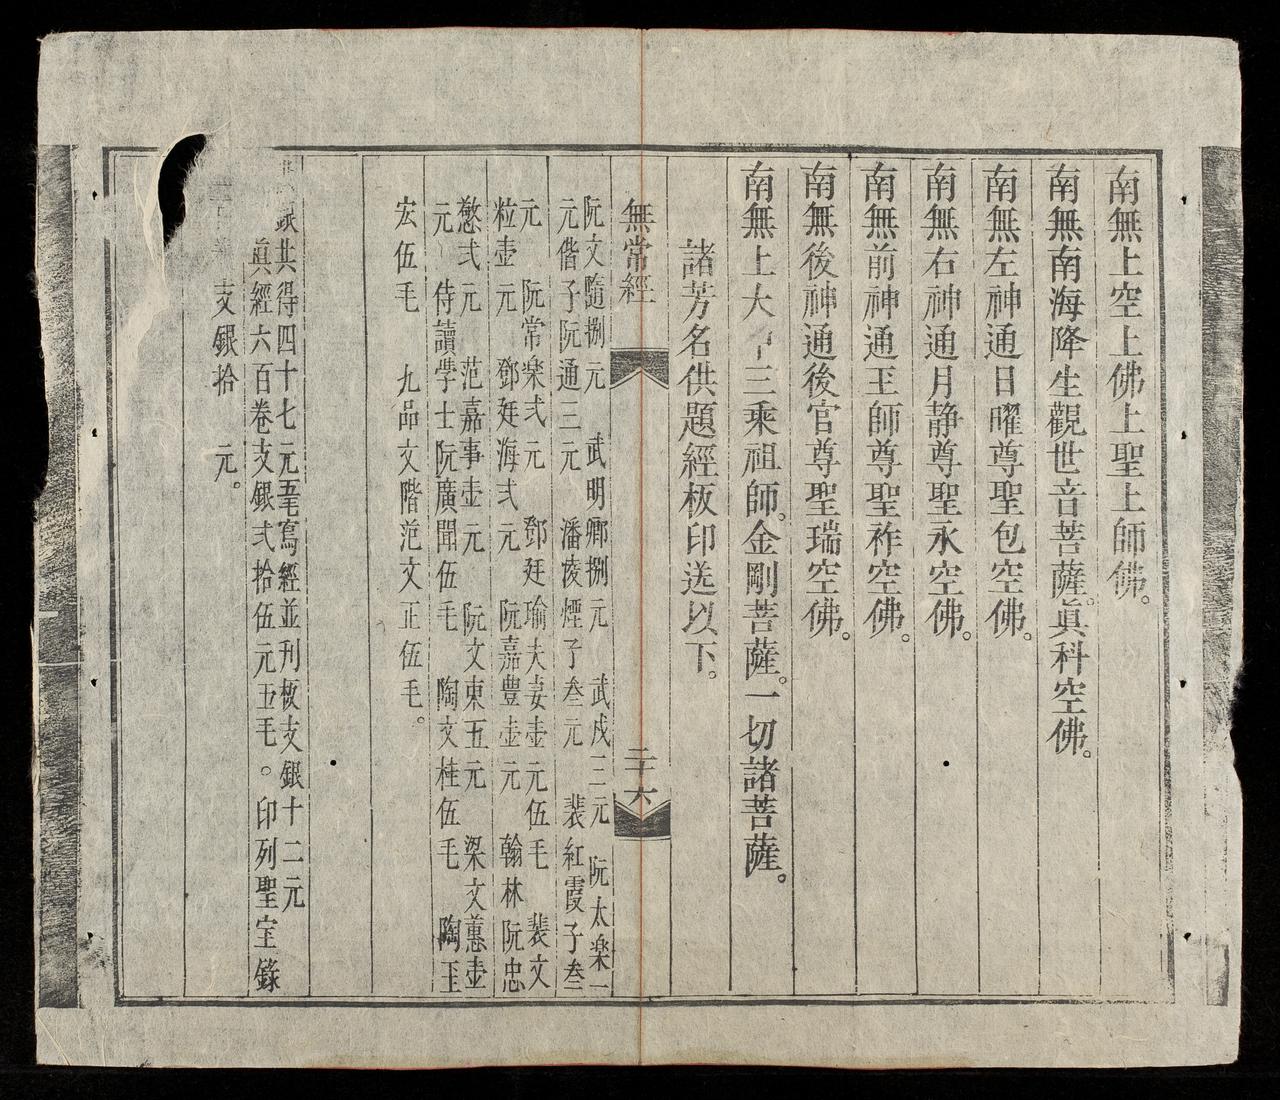 南無上空上佛上聖上師佛。
南無南海降生觀世音菩薩。眞科空佛。
南無左神通日曜尊聖包空佛。
南無右神通月静尊聖永空佛。
南無前神通王師尊聖祚空佛。
南無後神通後官尊聖瑞空佛。
南無上大三乘祖師。金剛菩薩。一切諸菩薩。
諸芳名供題經板印送以下。
無常經 二十六
阮文隨捌元 武明卿捌元 武戍三元 阮太楽一
元偕子阮通三元 潘凌煙子叁元 裴紅霞子叁
元 阮常楽弍元 鄧廷瑜夫妻壶元伍毛 裴文
粒壶元 鄧廷海弍元 阮嘉豊壶元 翰林阮忠
慜弍元 范嘉事壶元 阮文東五元 梁文蕙壶
元 侍讀學士阮廣聞伍毛 陶文桂伍毛 陶玊
宏伍毛 九品文階范文正伍毛。
銀共得四十七元五毛寫經並刊板支銀十二元
眞經六百卷支銀弍拾伍元五毛。印列聖宝錄
支銀拾元。